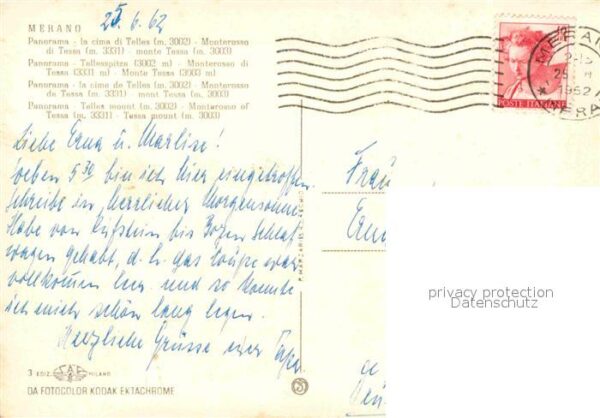 25.6.62
MERANO
Panorama - la cima di Telles (m. 3002) - Monterosso
di Tessa (m. 3331) - monte Tessa (m. 3003)
Panorama - Tallesspitze (3002 m) - Monterosso di
Tessa (3331 m) - Monte Tessa (3003 m)
Panorama - la cime de Telles (m. 3002) - Monterosso
de Tessa (m. 3331) - mont Tessa (m. 3003)
Panorama - Telles mount (m. 3002) - Monterosso of
Tessa (m. 3331) - Tessa mount (m. 3003)
Liebe Erna u. Marlise!
soeben 5 30 bin ich hier eingetroffen
schreibe in herrlicher Morgensonne
Habe von Kufstein bis Bozen Schlaf-
wagen gehabt, d. h. das Coupe war
vollkommen leer und so konnte
ich mich schön lang legen.
Herzliche Grüsse euer
3 EDIZ. SAF MILANO
DA FOTOCOLOR KODAK EKTACHROME
MERANO
25
1962
MERANO
POSTE ITALIANE
Frau
privacy protection
Datenschutz